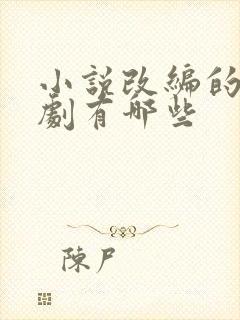 小説改編的
劇有哪些
陳尸